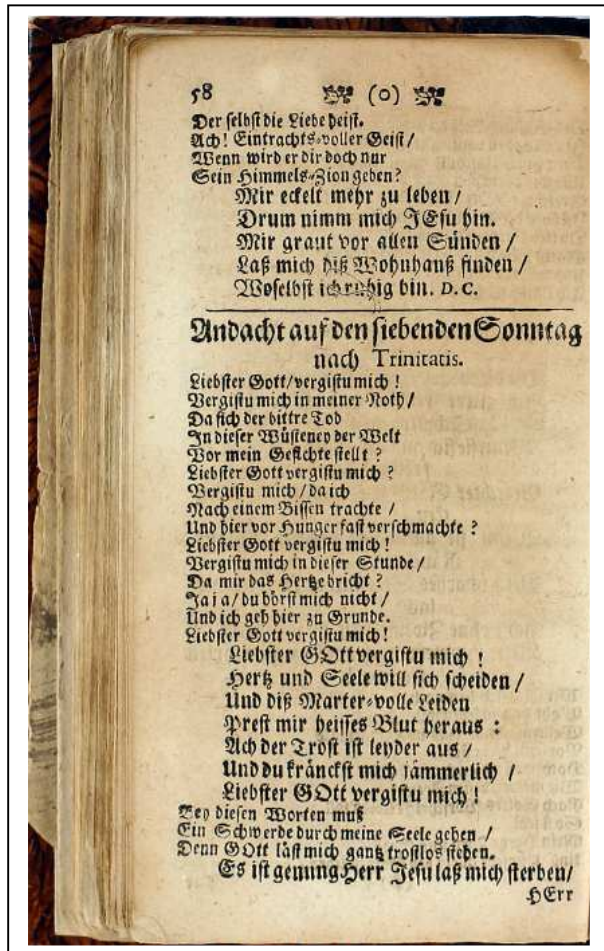 58 (o)
Der selbst die Liebe heist.
Ach! Eintrachts-voller Geist /
Wenn wird er dir doch nur
Sein Himmels-Zion geben?
Mir eckelt mehr zu leben /
Drum nimm mich JEsu hin.
Mir graut vor allen Sünden /
Laß mich diß Wohnhauß finden /
Woselbst ich ruhig bin. D. C.
Andacht auf den siebenden Sonntag
nach Trinitatis.
Liebster Gott / vergistu mich !
Vergistu mich in meiner Noth /
Da sich der bittre Tod
In dieser Wüsteney der Welt
Vor mein Gesichte stellt ?
Liebster Gott vergistu mich ?
Vergistu mich / da ich
Nach einem Bissen trachte /
Und hier vor Hunger fast verschmachte ?
Liebster Gott vergistu mich !
Vergistu mich in dieser Stunde /
Da mir das Hertze bricht ?
Ja ja / du hörst mich nicht /
Und ich geh hier zu Grunde.
Liebster Gott vergistu mich !
Liebster GOtt vergistu mich !
Hertz und Seele will sich scheiden /
Und diß Marter-volle Leiden
Prest mir heisses Blut heraus :
Ach der Trost ist leyder aus /
Und du kränckst mich jämmerlich /
Liebster GOtt vergistu mich !
Bey diesen Worten muß
Ein Schwerde durch meine Seele gehen /
Denn GOtt läst mich gantz trostlos stehen.
Es ist genung Herr Jesu laß mich sterben /
HErr